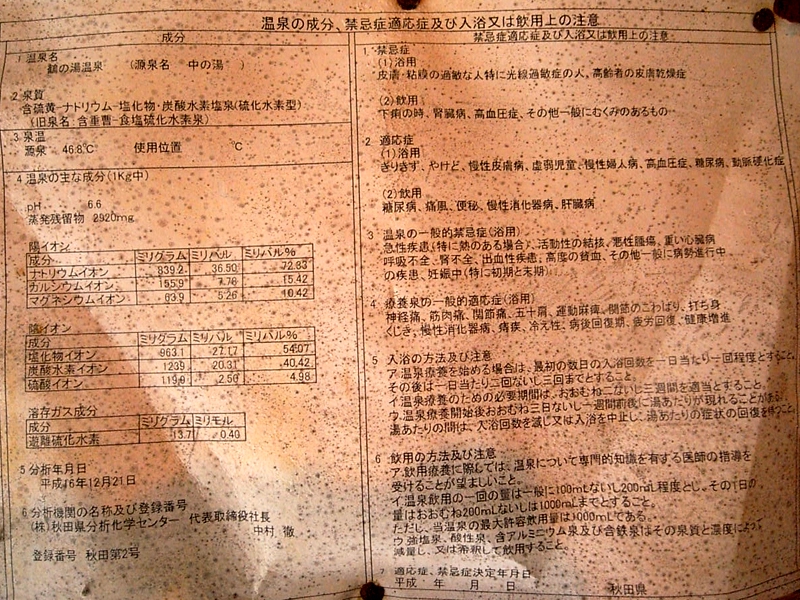 温泉の成分、禁忌症適応症及び入浴又は飲用上の注意
成分
1 温泉名
鶴の湯温泉 (源泉名 中の湯 )
2 泉質
含硫黄-ナトリウム-塩化物・炭酸水素塩泉(硫化水素型)
(旧泉名:含重曹-食塩硫化水素泉)
3 泉温
源泉 46.8℃ 使用位置 ℃
4 温泉の主な成分(1Kg中)
pH 6.6
蒸発残留物 2920mg
陽イオン
成分 ミリグラム ミリバル ミリバル%
ナトリウムイオン 839.2 36.50 72.83
カルシウムイオン 155.9 7.78 15.42
マグネシウムイオン 63.9 5.26 10.42
陰イオン
成分 ミリグラム ミリバル ミリバル%
塩化物イオン 963.1 27.17 54.07
炭酸水素イオン 1239 20.31 40.42
硫酸イオン 119.0 2.50 4.98
溶存ガス成分
成分 ミリグラム ミリモル
遊離硫化水素 13.7 0.40
5 分析年月日
平成16年12月21日
6 分析機関の名称及び登録番号
(株)秋田県分析化学センター 代表取締役社長
中村 徹
登録番号 秋田第2号
禁忌症適応症及び入浴又は飲用上の注意
1. 禁忌症
(1)浴用
皮膚・粘膜の過敏な人特に光線過敏症の人、高齢者の皮膚乾燥症
(2)飲用
下痢の時、腎臓病、高血圧症、その他一般にむくみのあるもの
2 適応症
(1)浴用
きりきず、やけど、慢性皮膚病、虚弱児童、慢性婦人病、高血圧症、糖尿病、動脈硬化症
(2)飲用
糖尿病、痛風、便秘、慢性消化器病、肝臓病
3 温泉の一般的禁忌症(浴用)
急性疾患(特に熱のある場合)、活動性の結核、悪性腫瘍、重い心臓病
呼吸不全、腎不全、出血性疾患、高度の貧血、その他一般に病勢進行中
の疾患、妊娠中(特に初期と末期)
4 療養泉の一般的適応症(浴用)
神経痛、筋肉痛、関節痛、五十肩、運動麻痺、関節のこわばり、打ち身
くじき、慢性消化器病、痔疾、冷え性、病後回復期、疲労回復、健康増進
5 入浴の方法及び注意
ア.温泉療養を始める場合は、最初の数日の入浴回数を一日当たり一回程度とすること。
その後は一日当たり二回ないし三回までとすること。
イ.温泉療養のための必要期間は、おおむね二ないし三週間を適当とすること。
ウ.温泉療養開始後おおむね三日ないし一週間前後に湯あたりが現れることがある。
湯あたりの間は、入浴回数を減じ又は入浴を中止し、湯あたりの症状の回復を待つこと。
6 飲用の方法及び注意
ア.飲用療養に際しては、温泉について専門的知識を有する医師の指導を
受けることが望ましいこと。
イ.温泉飲用の一回の量は一般に100mLないし200mL程度とし、その1日の
量はおおむね200mLないしは1000mLまでとすること。
ただし、当温泉の最大許容飲用量は1000mLである。
ウ.強塩泉、酸性泉、含アルミニウム泉及び含鉄泉はその泉質と濃度によって
減量し、又は希釈して飲用すること。
7 適応症、禁忌症決定年月日
平成 年 月 日 秋田県